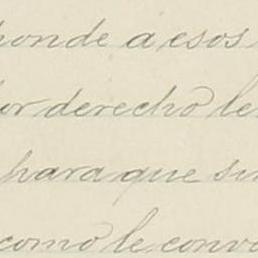 ponde a esos
por derecho le
para que sin
como le conv